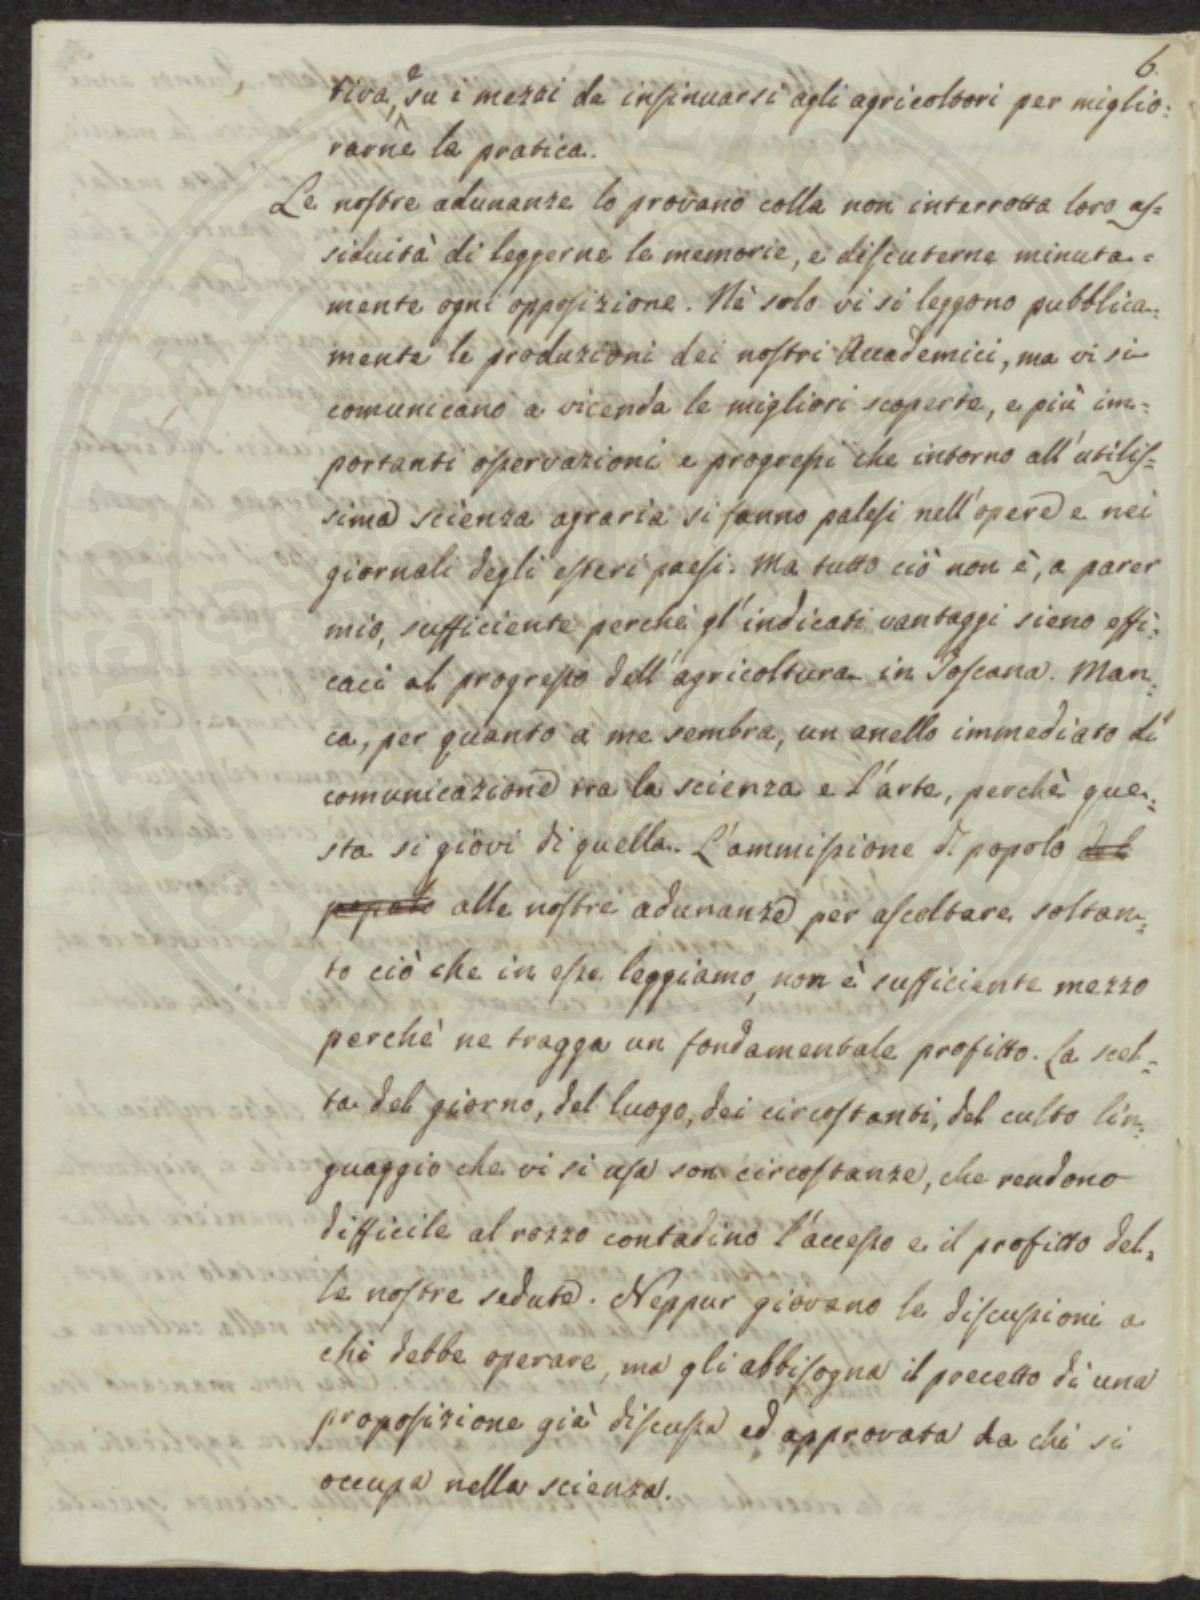 6.
tiva, e su i mezzi da insinuarsi agli agricoltori per miglio=
rarne la pratica.
Le nostre adunanze lo provano colla non interrotta loro as=
siduità di leggerne le memorie, e discuterne minuta=
mente ogni opposizione. Nè solo vi si leggono pubblica=
mente le produzioni dei nostri Accademici, ma vi si
comunicano a vicenda le migliori scoperte, e più im=
portanti osservazioni e progressi che intorno all'utilis=
sima scienza agraria si fanno palesi nell'opere e nei
giornali degli esteri paesi. Ma tutto ciò non è, a parer
mio, sufficiente perchè gl'indicati vantaggi sieno effi=
caci al progresso dell'agricoltura in Toscana. Man=
ca, per quanto a me sembra, un anello immediato di
comunicazione tra la scienza e l'arte, perchè que=
sta si giovi di quella. L'ammissione di popolo del
popolo alle nostre adunanze per ascoltare soltan=
to ciò che in esse leggiamo, non è sufficiente mezzo
perchè ne tragga un fondamentale profitto. La scel=
ta del giorno, del luogo, dei circostanti, del culto lin=
guaggio che vi si usa son circostanze, che rendono
difficile al rozzo contadino l'accesso e il profitto del=
le nostre sedute. Neppur giovano le discussioni a
chi debbe operare, ma gli abbisogna il precetto di una
proposizione già discussa ed approvata da chi si
occupa nella scienza.